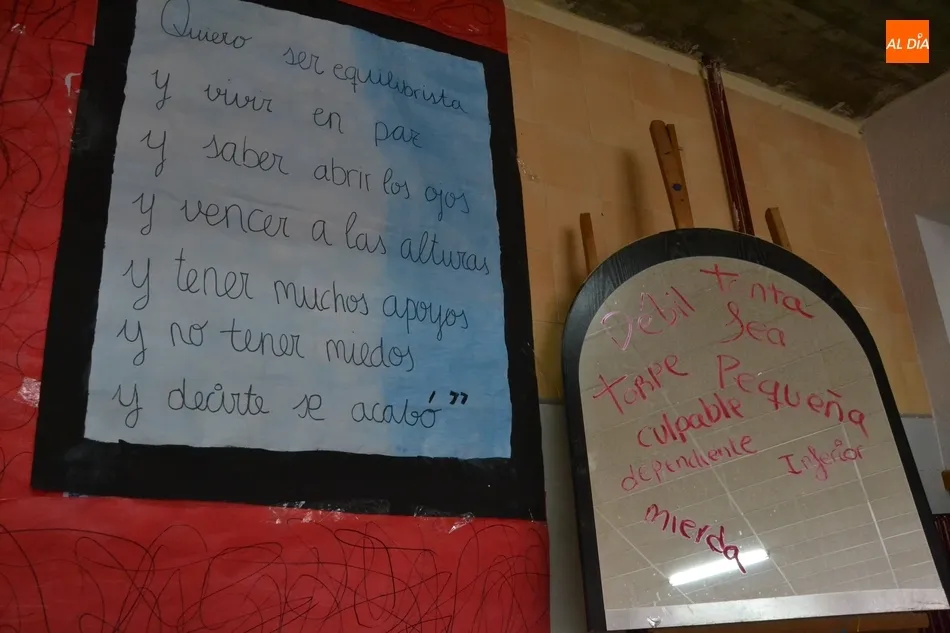 Quiero ser equilibrista
y vivir en paz
y saber abrir los ojos
y vencer a las alturas
y tener muchos apoyos
y no tener miedos
y decirte se acabó”
Débil tonta
fea
torpe Pequeña
culpable
dependiente Inferior
mierda
AL DÍA